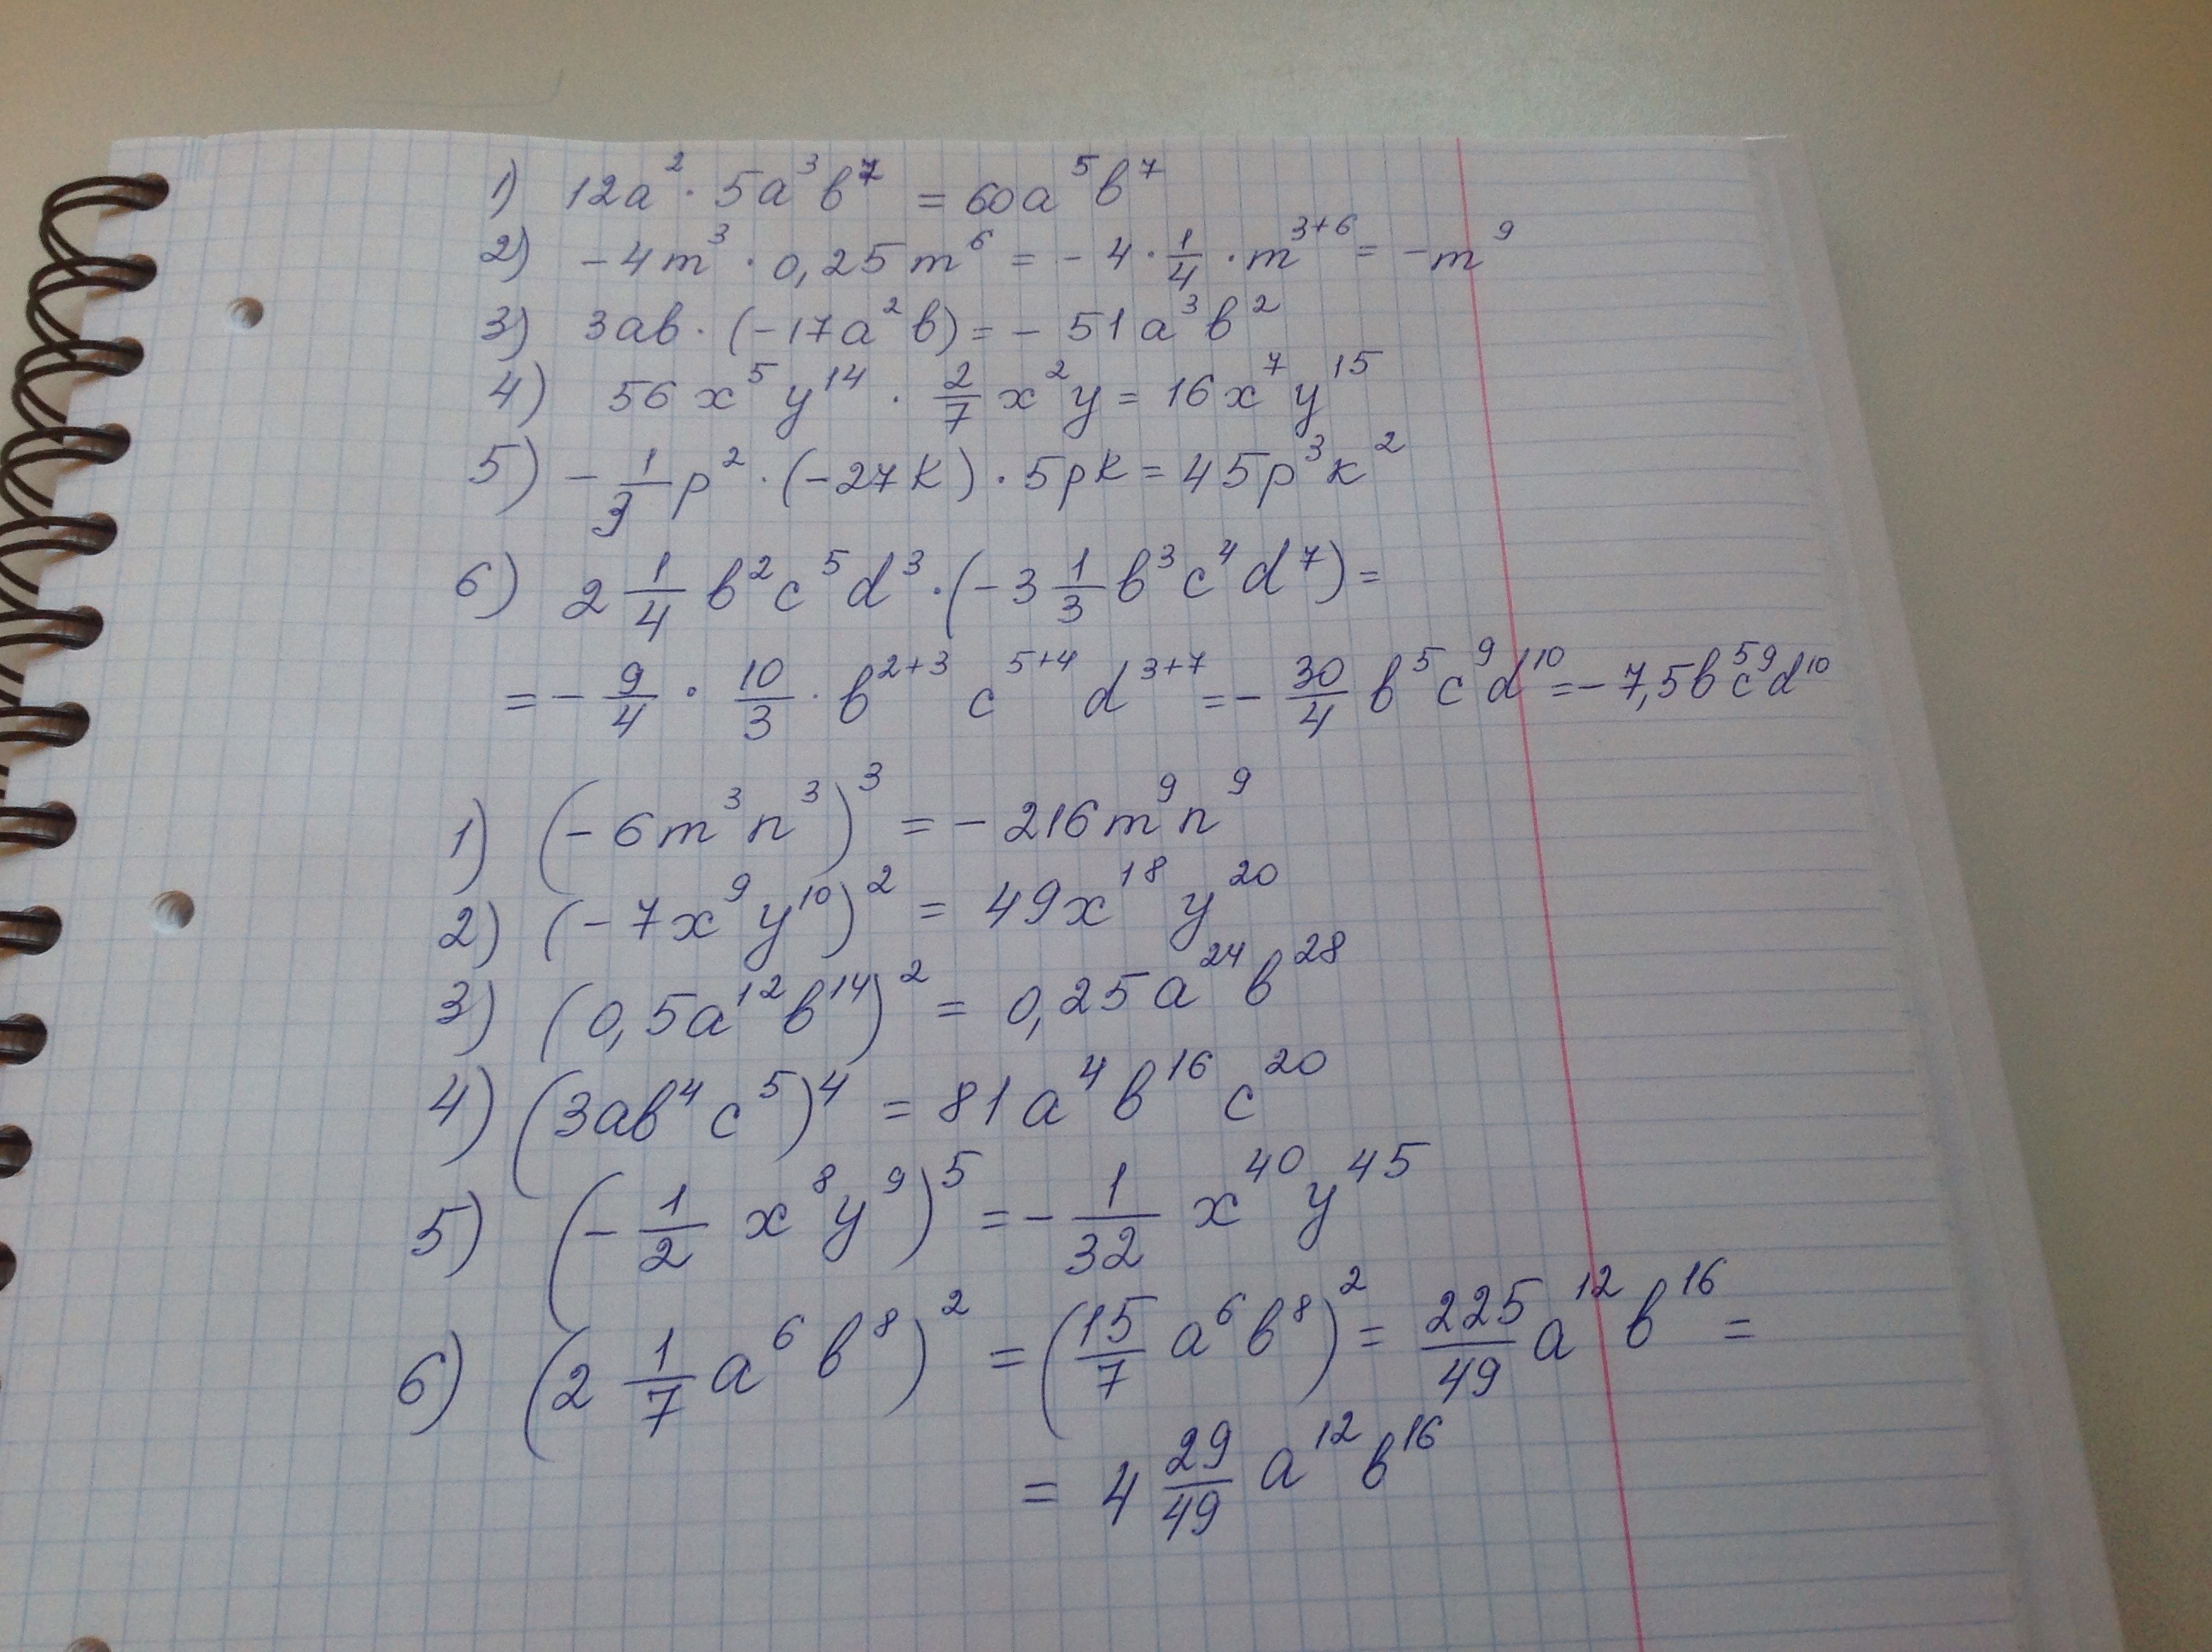 1) 12a² · 5a³b⁷ = 60a⁵b⁷
2) -4m³ · 0,25m⁶ = -4 · 1/4 · m³⁺⁶ = -m⁹
3) 3ab · (-17a²b) = -51a³b²
4) 56x⁵y¹⁴ · 2/7 x²y = 16x⁷y¹⁵
5) -1/3 p² · (-27k) · 5pk = 45p³k²
6) 2 1/4 b²c⁵d³ · (-3 1/3 b³c⁴d⁷) =
= -9/4 · 10/3 · b²⁺³ c⁵⁺⁴ d³⁺⁷ = -30/4 b⁵c⁹d¹⁰ = -7,5b⁵c⁹d¹⁰
1) (-6m³n³)³ = -216m⁹n⁹
2) (-7x⁹y¹⁰)² = 49x¹⁸y²⁰
3) (0,5a¹²b¹⁴)² = 0,25a²⁴b²⁸
4) (3ab⁴c⁵)⁴ = 81a⁴b¹⁶c²⁰
5) (-1/2 x⁸y⁹)⁵ = -1/32 x⁴⁰y⁴⁵
6) (2 1/7 a⁶b⁸)² = (15/7 a⁶b⁸)² = 225/49 a¹²b¹⁶ =
= 4 29/49 a¹²b¹⁶